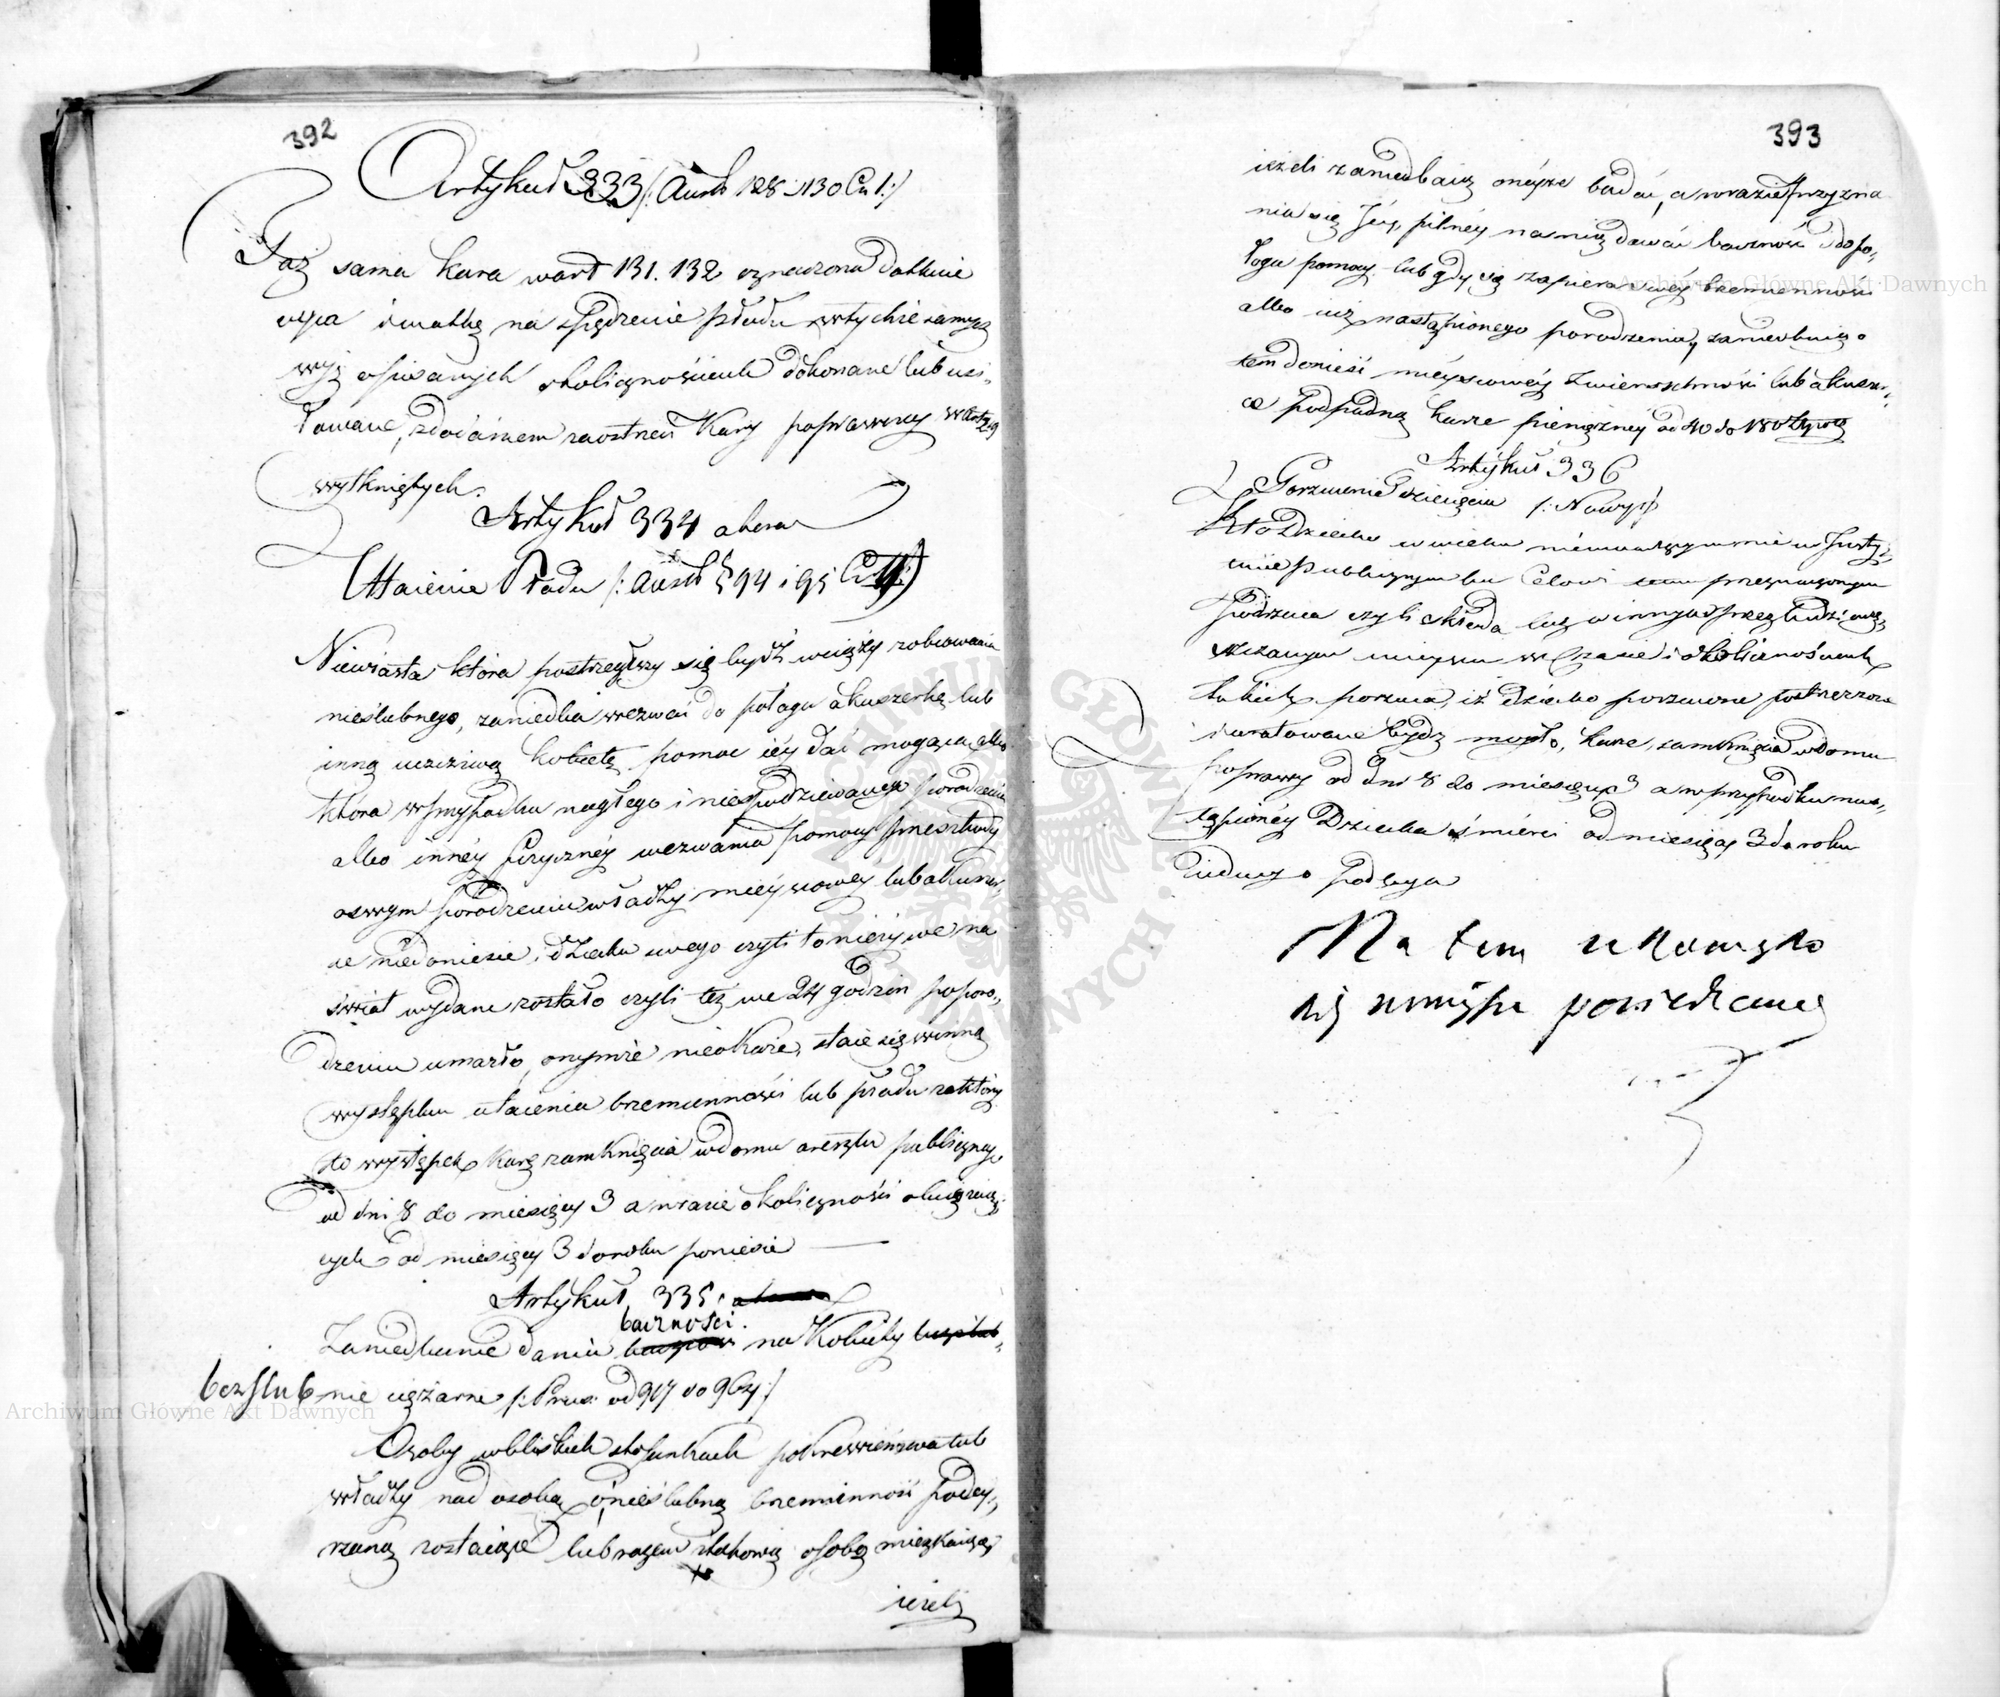 392
Artykuł 333 /: Austr 128 i 130 Cz I :/
Taż sama kara w art 131. 132 oznaczona dotknie
oyca i matkę na spędzenie płodu w tychże samych
wyż opisanych okolicznościach dokonane lub usi-
łowane, z dodaniem zaostrzeń Kary poprawczey w art 29
wytkniętych.
Artykuł 334
Utaienie Płodu /: Austr § 94 i 95 Cz II :/
Niewiasta która postrzegłszy się bydź w ciąży z obcowania
nieślubnego, zaniedba wezwać do połogu akuszerkę lub
inną uczciwą kobietę pomoc iéy dać mogącą, albo
która w przypadku nagłego i niespodziewanego porodzenia
albo innéy fizycznéy wezwania pomocy przeszkody
o swym porodzeniu władzy mieyscowey lub akuszer-
ce nie doniesie, i dziecka swego czyli to nieżywe na
świat wydane zostało czyli też we 24 godzin po poro-
dzeniu umarło, onymże nieokaże, staie się winną
występku utaienia brzemienności lub płodu za który
to występek karę zamknięcia w domu aresztu publicznego
od dni 8 do miesięcy 3 a w razie okoliczności obciążaią-
cych od miesięcy 3 do roku poniesie
Artykuł 335
baczności
Zaniedbanie dania na Kobiety
bezślub nie ciężarne /: Prus: od 917 do 964 :/
Osoby w bliskich stosunkach pokrewieństwa lub
władzy nad osobą o nieślubną brzemienność podey-
rzaną zostaiące lub razem z takową osobą mieszkaiące
ieżeli
393
ieżeli zaniedbaią onéyże badać, a w razie przyzna
nia się Jéy, pilnéy na nią dawać baczność i do po-
łogu pomocy lub gdy się zapiera swéy brzemienności
albo iuż nastąpionego porodzenia, zaniedbaią o
tem donieść mieyscowéy Zwierzchności lub akuszer-
ce podpadną karze pieniężnéy od 40 do 180 Złpol
Artykuł 336
Porzucenie dziecięcia /: Nowy :/
Kto Dziecko w wieku niemowlęcym nie w Insty-
tucie publicznym ku Celowi temu przeznaczonym
podrzuca czyli składa lecz w innym przez ludzi uczę-
szczanym mieyscu w czasie i okolicznościach
takich porzuca, iż dziecko porzucone postrzeżone
i uratowane bydź mogło, karze zamknięcia w domu
poprawy od dni 8 do miesięcy 3 a w przypadku nas-
tąpionéy Dziecka śmierci od miesięcy 3 do roku
iednego podlega
Na tem ukończono